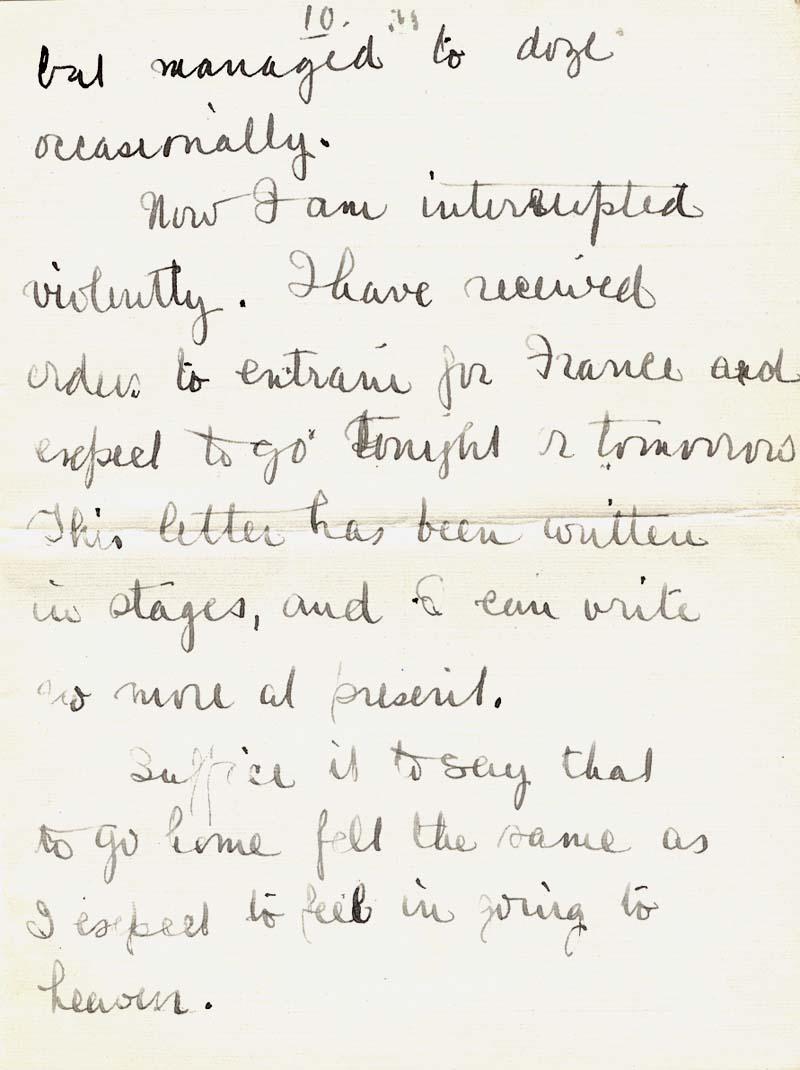 10.
but managed to doze
occasionally.
Now I am interrupted
violently. I have received
orders to entrain for France and
expect to go tonight or tomorrow
This letter has been written
in stages, and I can write
no more at present.
Suffice it to say that
to go home felt the same as
I expect to feel in going to
heaven.